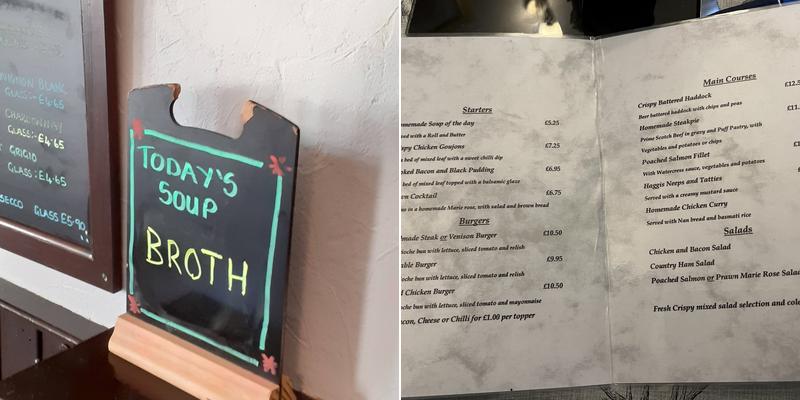 VIGNON BLANC
GLASS:- £4.65
CHARDONNAY
GLASS:- £4.65
GRIGIO
GLASS:- £4.65
SECCO GLASS £5.90
TODAY'S
SOUP
BROTH
Starters
memade Soup of the day £5.25
ved with a Roll and Butter
py Chicken Goujons £7.25
bed of mixed leaf with a sweet chilli dip
ked Bacon and Black Pudding £6.95
bed of mixed leaf topped with a balsamic glaze
wn Cocktail £6.75
in a homemade Marie rose, with salad and brown bread
Burgers
made Steak or Venison Burger £10.50
ioche bun with lettuce, sliced tomato and relish
able Burger £9.95
ioche bun with lettuce, sliced tomato and relish
Chicken Burger £10.50
che bun with lettuce, sliced tomato and mayonnaise
con, Cheese or Chilli for £1.00 per topper
Main Courses
Crispy Battered Haddock £12.5
Beer battered haddock with chips and peas
Homemade Steakpie £11.
Prime Scotch Beef in gravy and Puff Pastry, with
Vegetables and potatoes or chips
Poached Salmon Fillet
With Watercress sauce, vegetables and potatoes
Haggis Neeps and Tatties
Served with a creamy mustard sauce
Homemade Chicken Curry
Served with Nan bread and basmati rice
Salads
Chicken and Bacon Salad
Country Ham Salad
Poached Salmon or Prawn Marie Rose Salad
Fresh Crispy mixed salad selection and